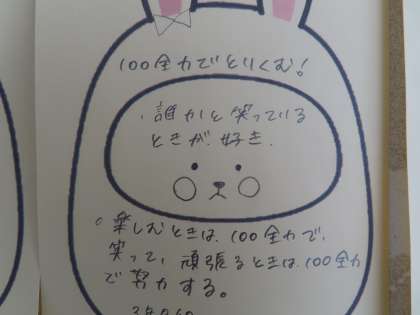 100全力でとりくむ!
・誰かと笑っている
ときが好き.
○楽しむときは、100全力で、
笑って、頑張るときは、100全力
で努力する。